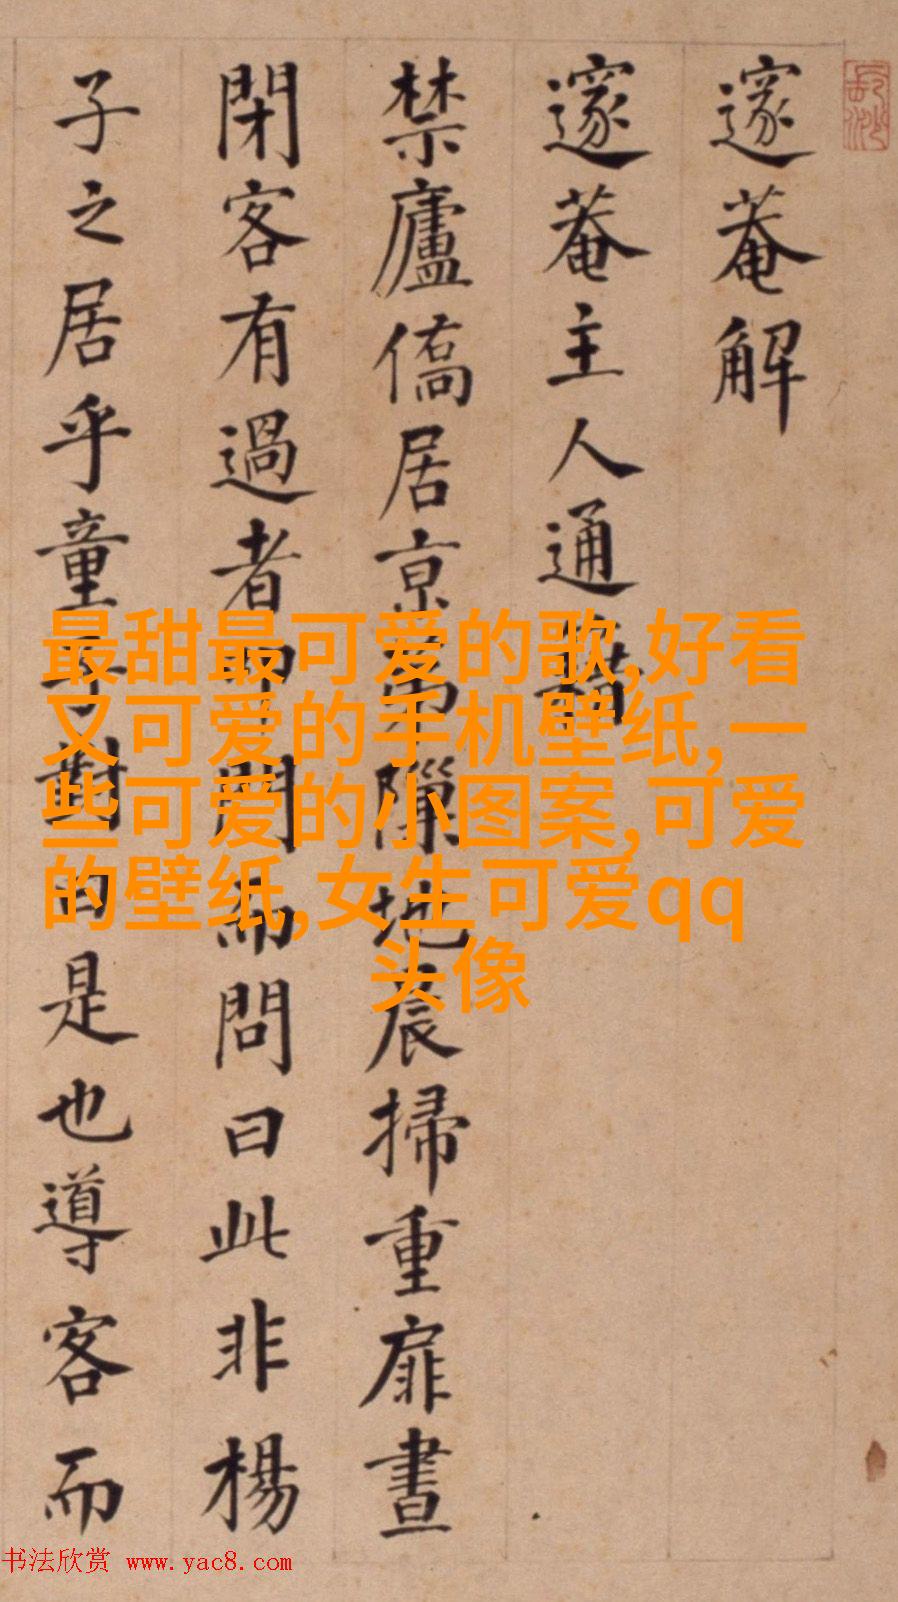 邃菴解
邃菴主人通籍
禁廬僑居京地晨掃重扉晝
閉客有過者而問曰此非楊
子之居乎童子對曰是也導客而
最甜最可爱的歌,好看
又可爱的手机壁纸,一
些可爱的小图案,可爱
的壁纸,女生可爱qq
头像
书法欣赏 www.yac8.com